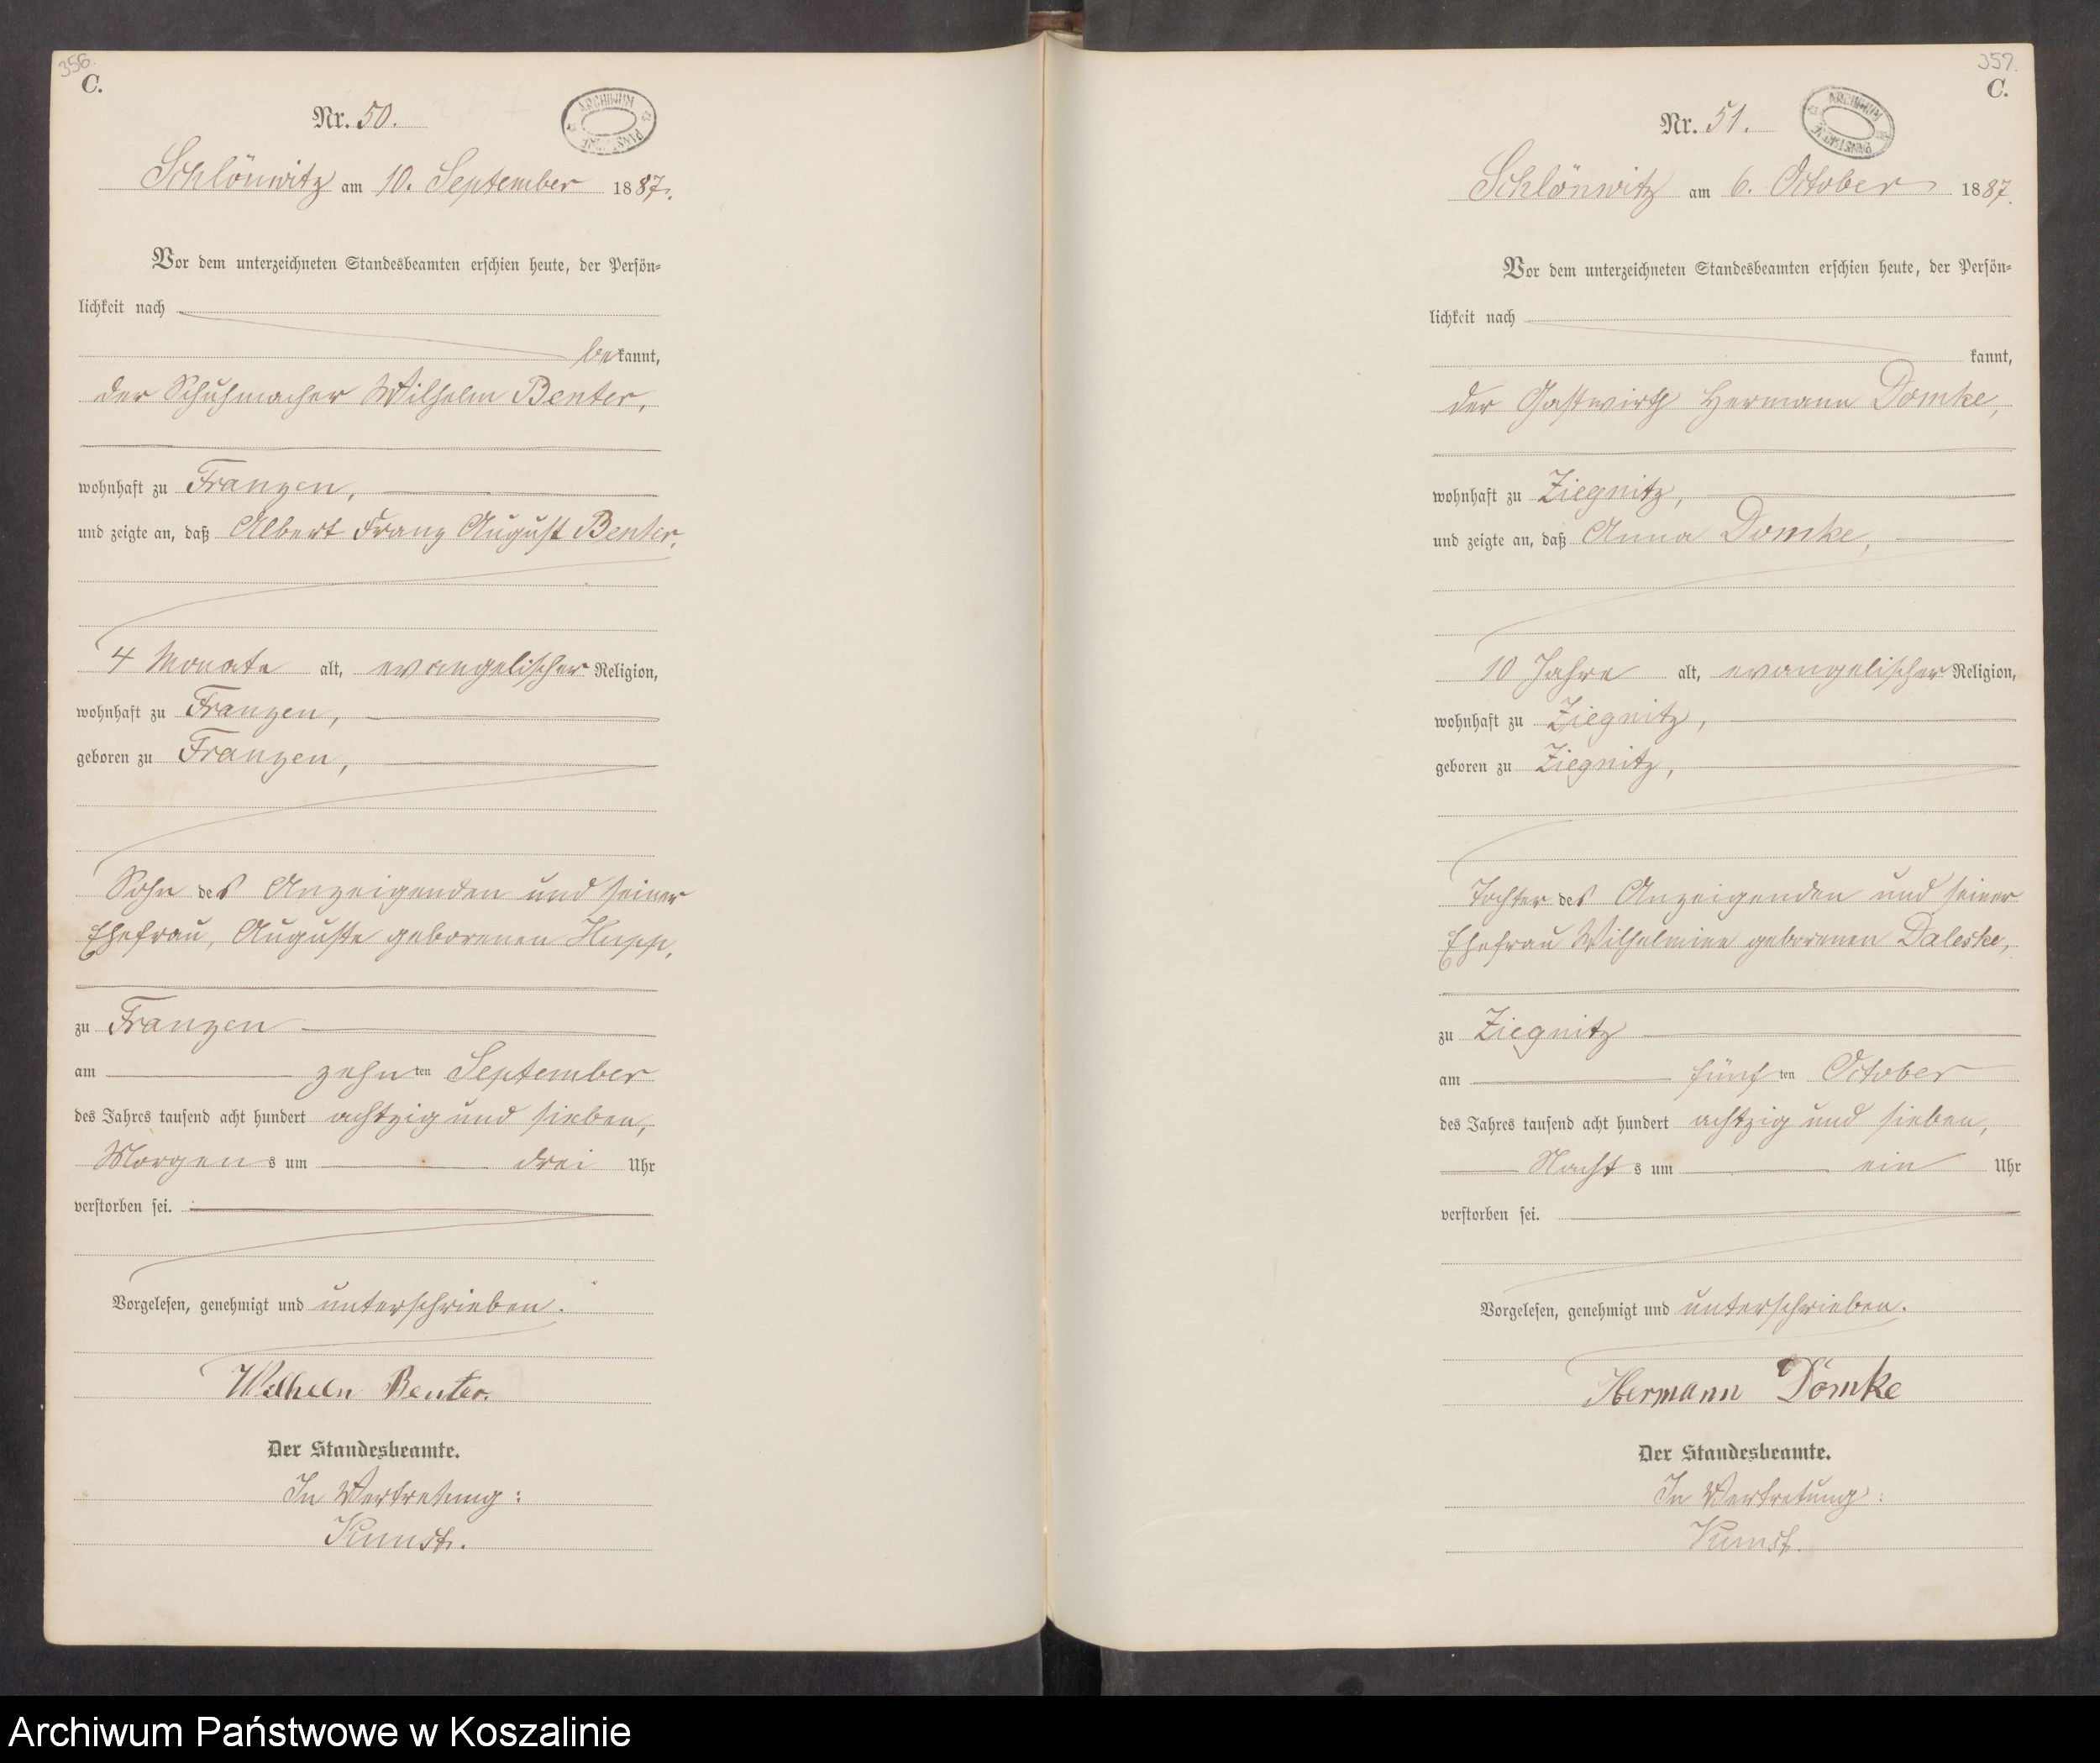 356.
C.
Nr. 50.
ARCHIWUM PAŃSTWOWE
Schlönwitz am 10. September 1887.
Vor dem unterzeichneten Standesbeamten erschien heute, der Persön-
lichkeit nach
bekannt,
der Schuhmacher Wilhelm Benter,
wohnhaft zu Franzen,
und zeigte an, daß Albert Franz August Benter,
4 Monate alt, evangelischer Religion,
wohnhaft zu Franzen,
geboren zu Franzen,
Sohn des Anzeigenden und seiner
Ehefrau, Auguste geborenen Hupp,
zu Franzen
am zehnten September
des Jahres tausend acht hundert achtzig und sieben,
Morgens um drei Uhr
verstorben sei.
Vorgelesen, genehmigt und unterschrieben.
Wilhelm Benter.
Der Standesbeamte.
In Vertretung:
Kunst.
357.
C.
Nr. 51.
ARCHIWUM PAŃSTWOWE
Schlönwitz am 6. October 1887.
Vor dem unterzeichneten Standesbeamten erschien heute, der Persön-
lichkeit nach
kannt,
der Gastwirth Hermann Domke,
wohnhaft zu Ziegnitz,
und zeigte an, daß Anna Domke,
10 Jahre alt, evangelischer Religion,
wohnhaft zu Ziegnitz,
geboren zu Ziegnitz,
Tochter des Anzeigenden und seiner
Ehefrau Wilhelmine geborenen Daleske,
zu Ziegnitz
am fünften October
des Jahres tausend acht hundert achtzig und sieben,
Nachts um ein Uhr
verstorben sei.
Vorgelesen, genehmigt und unterschrieben.
Hermann Domke
Der Standesbeamte.
In Vertretung:
Kunst.
Archiwum Państwowe w Koszalinie